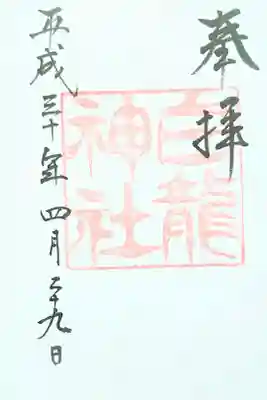 奉拝
白龍
神社
平成三十年四月二十九日